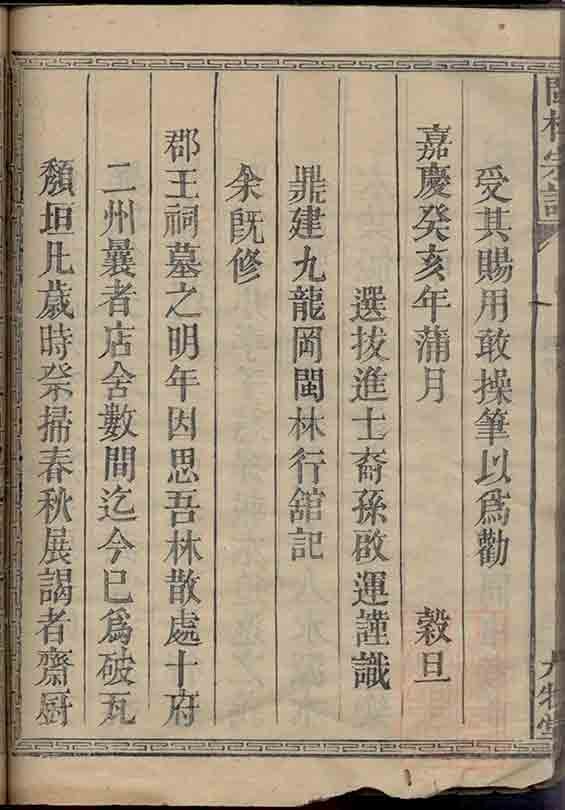 受其賜用敢操筆以為勸
嘉慶癸亥年蒲月　穀旦
選拔進士裔孫啟運謹識
鼎建九龍岡閩林行舘記
余既修
郡王祠墓之明年因思吾林散處十府
二州曩者店舍數間迄今已為破瓦
頹垣凡歲時祭掃春秋展謁者齋厨